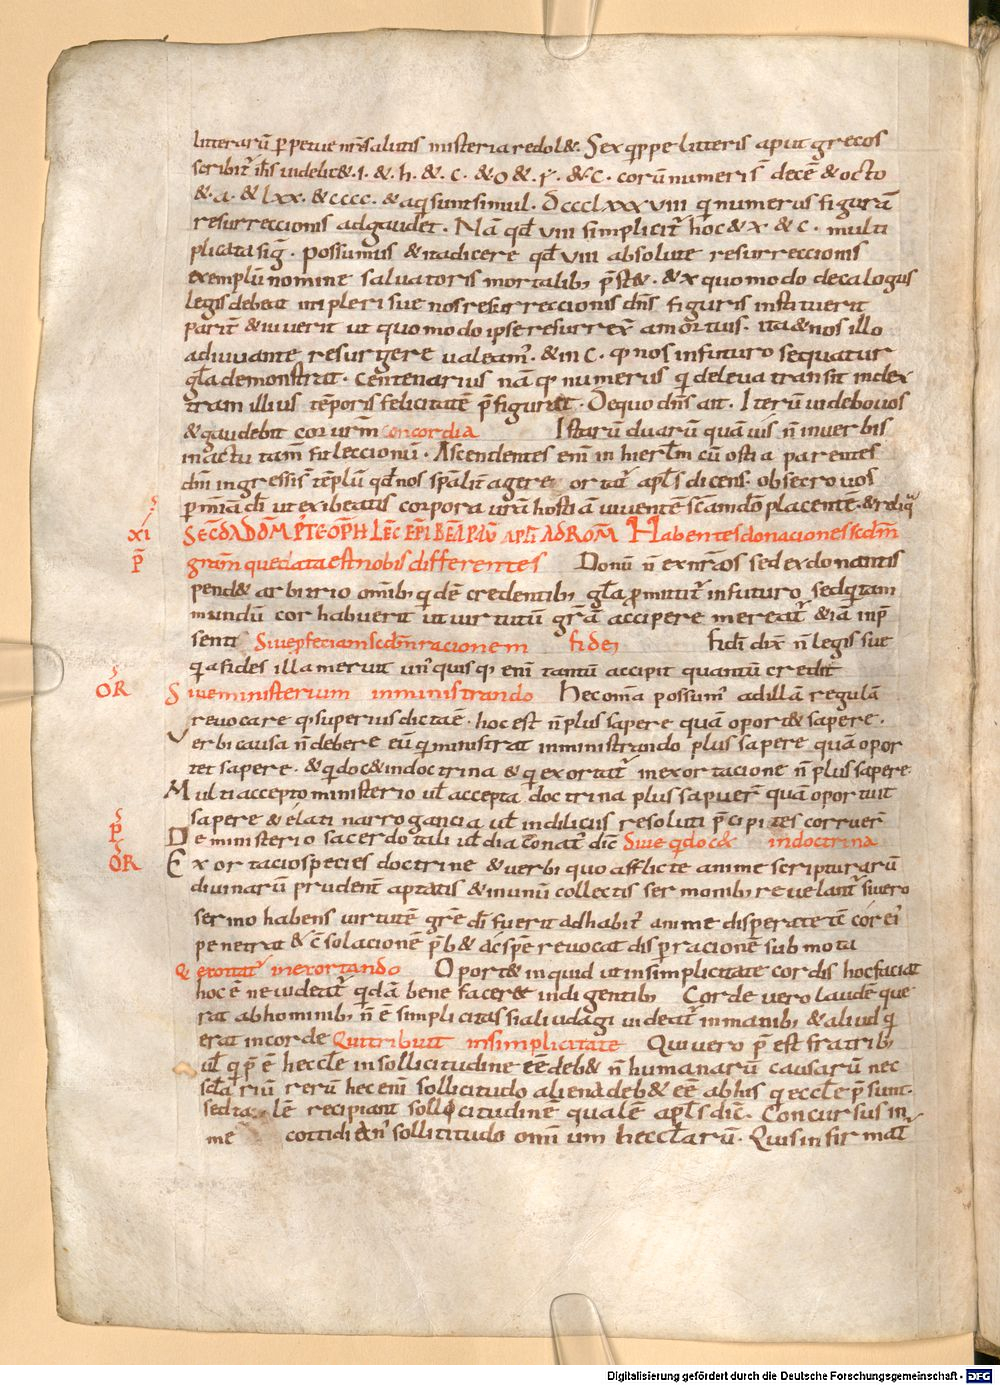 litterarū p̲petue nr̄e salutis misteria redol&. Sex q̲ppe litteris aput grecos
scribit᷑ ih̄s uidelic& . I . & . h . & . c . & o & . y . & c . corū numeris decē & octo
& . a . & lxx . & cccc . & aq̄ sunt simul . Dccclxxxviii qi numerus figurā
resurreccionis adgaudet . Nā qd̄ viii simplicit᷑ hoc & x & c . multi
plicata sig̅ . possumus & ita dicere qd̄ viii absolute resurreccionis
exemplū nomine saluatoris mortalib; p̄st& . & x quomodo decalogus
legis debeat inpleri sue nos resurreccionis dn̄s figuris instituerit
parit᷑ & iuuerit ut quomodo ipse resurrex̄ a mortuis . ita & nos illo
adiuuante resurgere ualeam᷒ . & in c . q̲ nos in futuro sequatur
gl̄a demonstrat . centenarius nā q̲ numerus qi de leua transit in dex
tram illius tēporis felicitatē p̄figurat . De quo dn̄s ait . Iterū uidebo uos
& gaudebit cor ur̄m concordia Istarū duarū quāuis n̄ in uerbis
in actu tam̄ fit leccionū . Ascendentes eni in hierl̄m cū ostia parentes
dn̄i ingressis tēplū qd̄ nos spālit᷑ agere ortat᷑ apl̄s dicens . obsecro uos
p̲ mīam dī ut exibeatis corpora ur̄a hostiā uiuentē sc̄am dō placentē . & reliq̲
xi SEC̄DA DOM̄ P᷑ THEOPH̄ LEC̄ EPĪ BEĀ PAU APLĪ AD ROM̄ Habentes donaciones sc̄dm̄
p̄ gram̄ que data est nobis differentes Donū n̄ ex nr̄a os sed ex donantis
pend& arbitrio omīb; qidē credentib; gl̄a p̲mittit᷑ in futuro sed qi tam
mundū cor habuerit ut uirtutū gr̄ā accipere mereat᷑ & iā in p̄
senti Siue p̲feciam sc̄dm̄ racionem fidei fidī dix̄ n̄ legis sue
qia fides illa meruit un᷒ quisq̲ eni tantū accipit quantū credit
OR Siue ministerium in ministrando Hec om̄a possum᷒ ad illā regulā
reuocare q̲ superius dicta ē . hoc est n̄ plus sapere quā oport& sapere .
Verbi causa n̄ debere eū qi ministrat in ministrando plus sapere quā opor
tet sapere . & qi doc& in doctrina & qi exortat᷑ in exortacione n̄ plus sapere .
Multi accepto ministerio ul̄ accepta doctrina plus sapuer̄ quā oportuit
sapere & elati in arrogancia ul̄ in diliciis resoluti p̄cipites corruer̄
p̄ De ministerio sacerdotali ul̄ diaconat᷒ dic̄ Siue qi doc& in doctrina
OR Exortacio species doctrine & uerbi quo afflicte anime scripturarū
diuinarū prudent᷑ aptatis & in unū collectis sermonib; reuelant᷑ si uero
sermo habens uirtutē gr̄e dī fuerit adhabit᷒ anime disperate iā cor ei᷒
penetrat & c̄solacionē p̄b& & ad spē reuocat disperacionē submota
Qi exortat᷑ in exortando Oport& inquid ut in simplicitate cordis hoc faciat
hoc ē ne uideat᷑ qidā bene facere indigentib; Corde uero laudē que
rat ab hominib; n̄ ē simplicitas si aliud agi uideat᷑ in manib; & aliud qi
erat in corde Qui tribuit in simplicitate Qui uero p̄ est fratrib;
ul̄ qi p̄ ē heccl̄e in sollicitudine ēe deb& n̄ humanarū causarū nec
sc̄larium rerū hec eni sollicitudo aliena deb& ēe ab his qi eccl̄e p̄sunt .
sed ta lē recipiant sollicitudinē qualē apl̄s dic̄ . Concursus in
me cottidian᷒ sollicitudo omīum heccl̄arū . Quis infirmat᷑